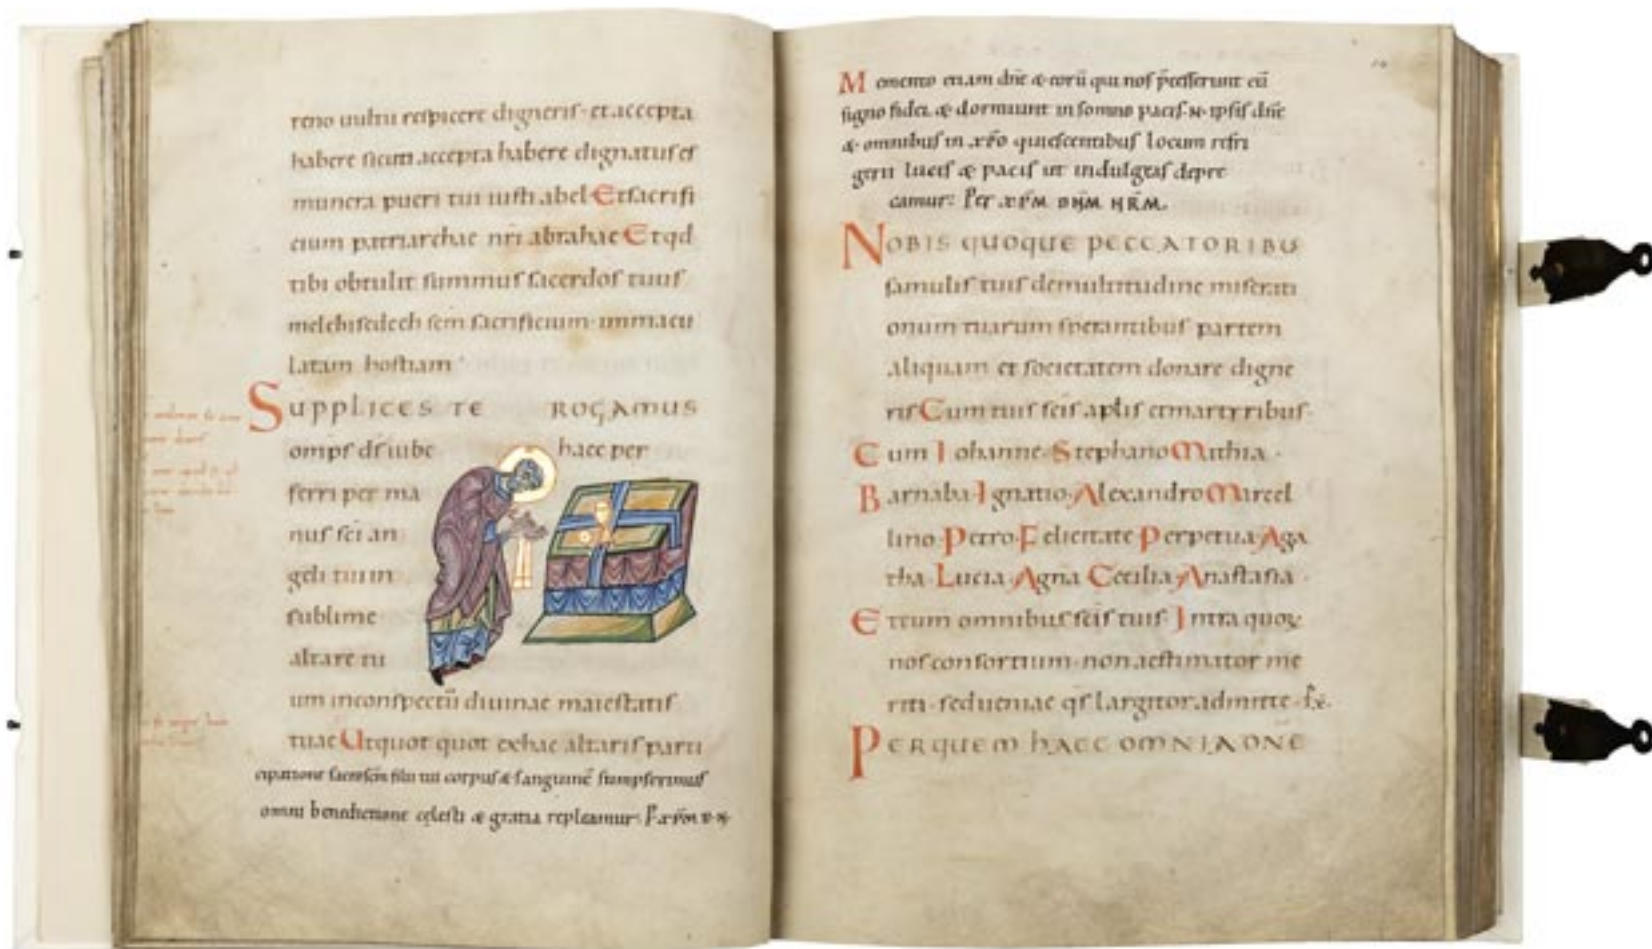 reno uultu respicere digneris · et accepta
habere sicuti accepta habere dignatus es
munera pueri tui iusti abel Et sacrifi
cium patriarchae nr̄i abrahae Et qd
tibi obtulit summus sacerdos tuus
melchisedech scm̄ sacrificium · immacu
latam hostiam ·
SUPPLICES TE ROGAMUS
omps̄ ds̄ iube haec per
ferri per ma
nus sc̄i an
geli tui in
sublime
altare tu
um inconspectū diuinae maiestatis
tuae Ut quot quot exhac altaris parti
cipatione filii tui corpus & sanguinē sumpserimus
omni benedictione cęlesti & gratia repleamur. P. xp̄m
Memento etiam dn̄e & eorū qui nos p̄cesserunt cū
signo fidei & dormiunt in somno pacis · N · ipsis dn̄e
& omnibus in xp̄o quiescentibus locum refri
gerii lucis & pacis ut indulgeas depre
camur: Per xp̄m DN̄M NR̄M.
NOBIS QUOQUE PECCATORIBUS
famulis tuis demultitudine miserati
onum tuarum sperantibus partem
aliquam et societatem donare digne
ris Cum tuis sc̄is aplis et martyribus ·
Cum Iohanne · Stephano Mathia ·
Barnaba · Ignatio · Alexandro Marcel
lino · Petro · Felicitate Perpetua · Aga
tha · Lucia · Agna Cecilia · Anastasia ·
Et cum omnibus sc̄is tuis · Intra quoꝝ
nos consortium · non aestimator me
riti · sed ueniae qs̄ largitor admitte ·
PER QUEM HAEC OMNIA DNE